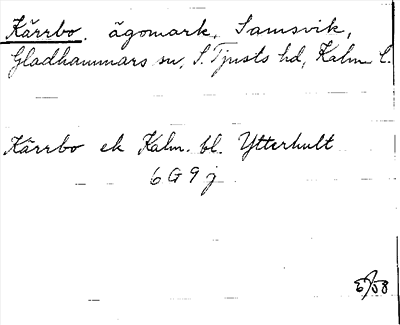 Kärrbo. ägomark, Samsvik,
Gladhammars sn, S. Tjusts hd, Kalm. l.
Kärrbo ek Kalm. bl. Ytterhult
6 G 9 j
58